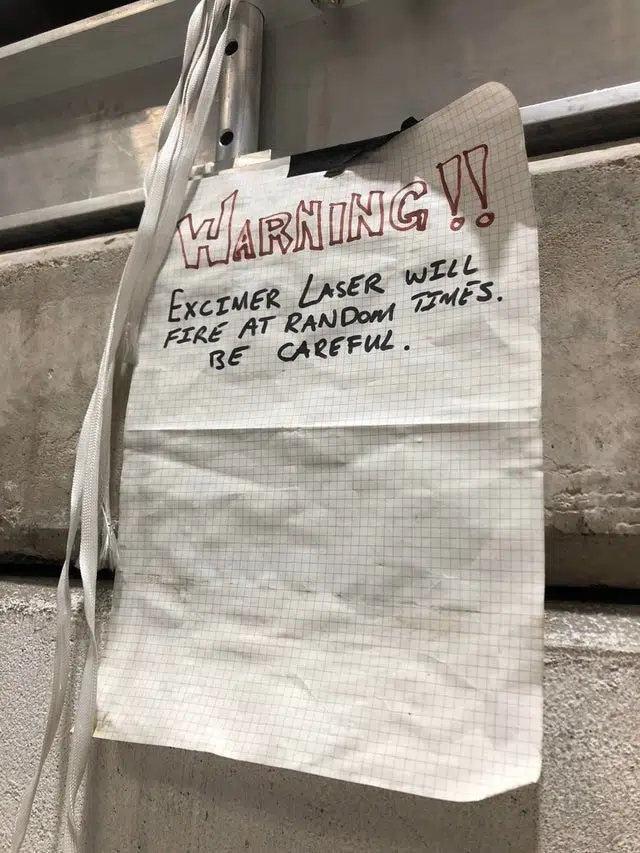 WARNING!!
EXCIMER LASER WILL
FIRE AT RANDOM TIMES.
BE CAREFUL.